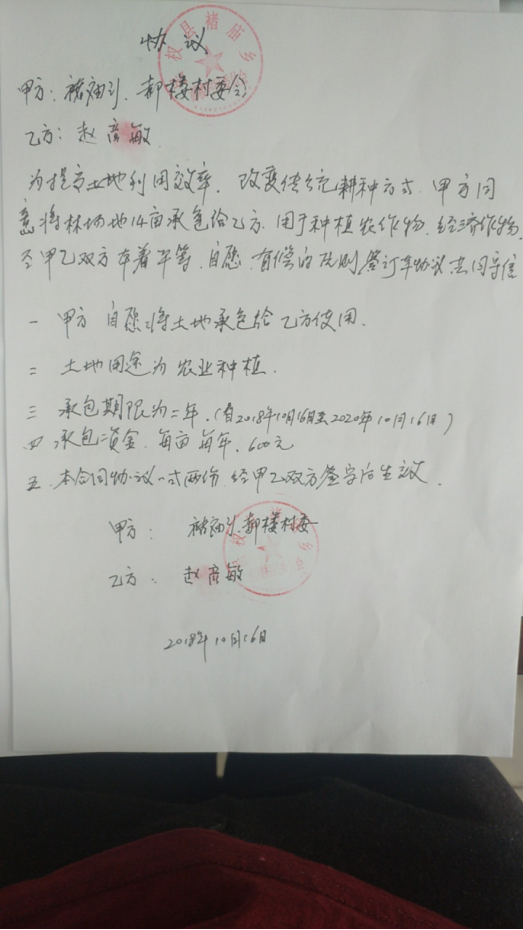 协议
权县褚庙乡
甲方：褚庙乡.郝楼村委会
乙方：赵彦敏
为提高土地利用效率．改变传统耕种方式．甲方同
意将林场地14亩承包给乙方．用于种植农作物．经济作物．
经甲乙双方本着平等．自愿．有偿的原则签订本协议共同守信
一 甲方自愿将土地承包给乙方使用．
二 土地用途为农业种植．
三 承包期限为二年．(自2018年10月16日至2020年10月16日)
四 承包资金．每亩每年．600元
五．本合同协议一式两份．经甲乙双方签字后生效．
甲方： 褚庙乡.郝楼村委
权县褚庙乡
乙方： 赵彦敏
2018年10月16日